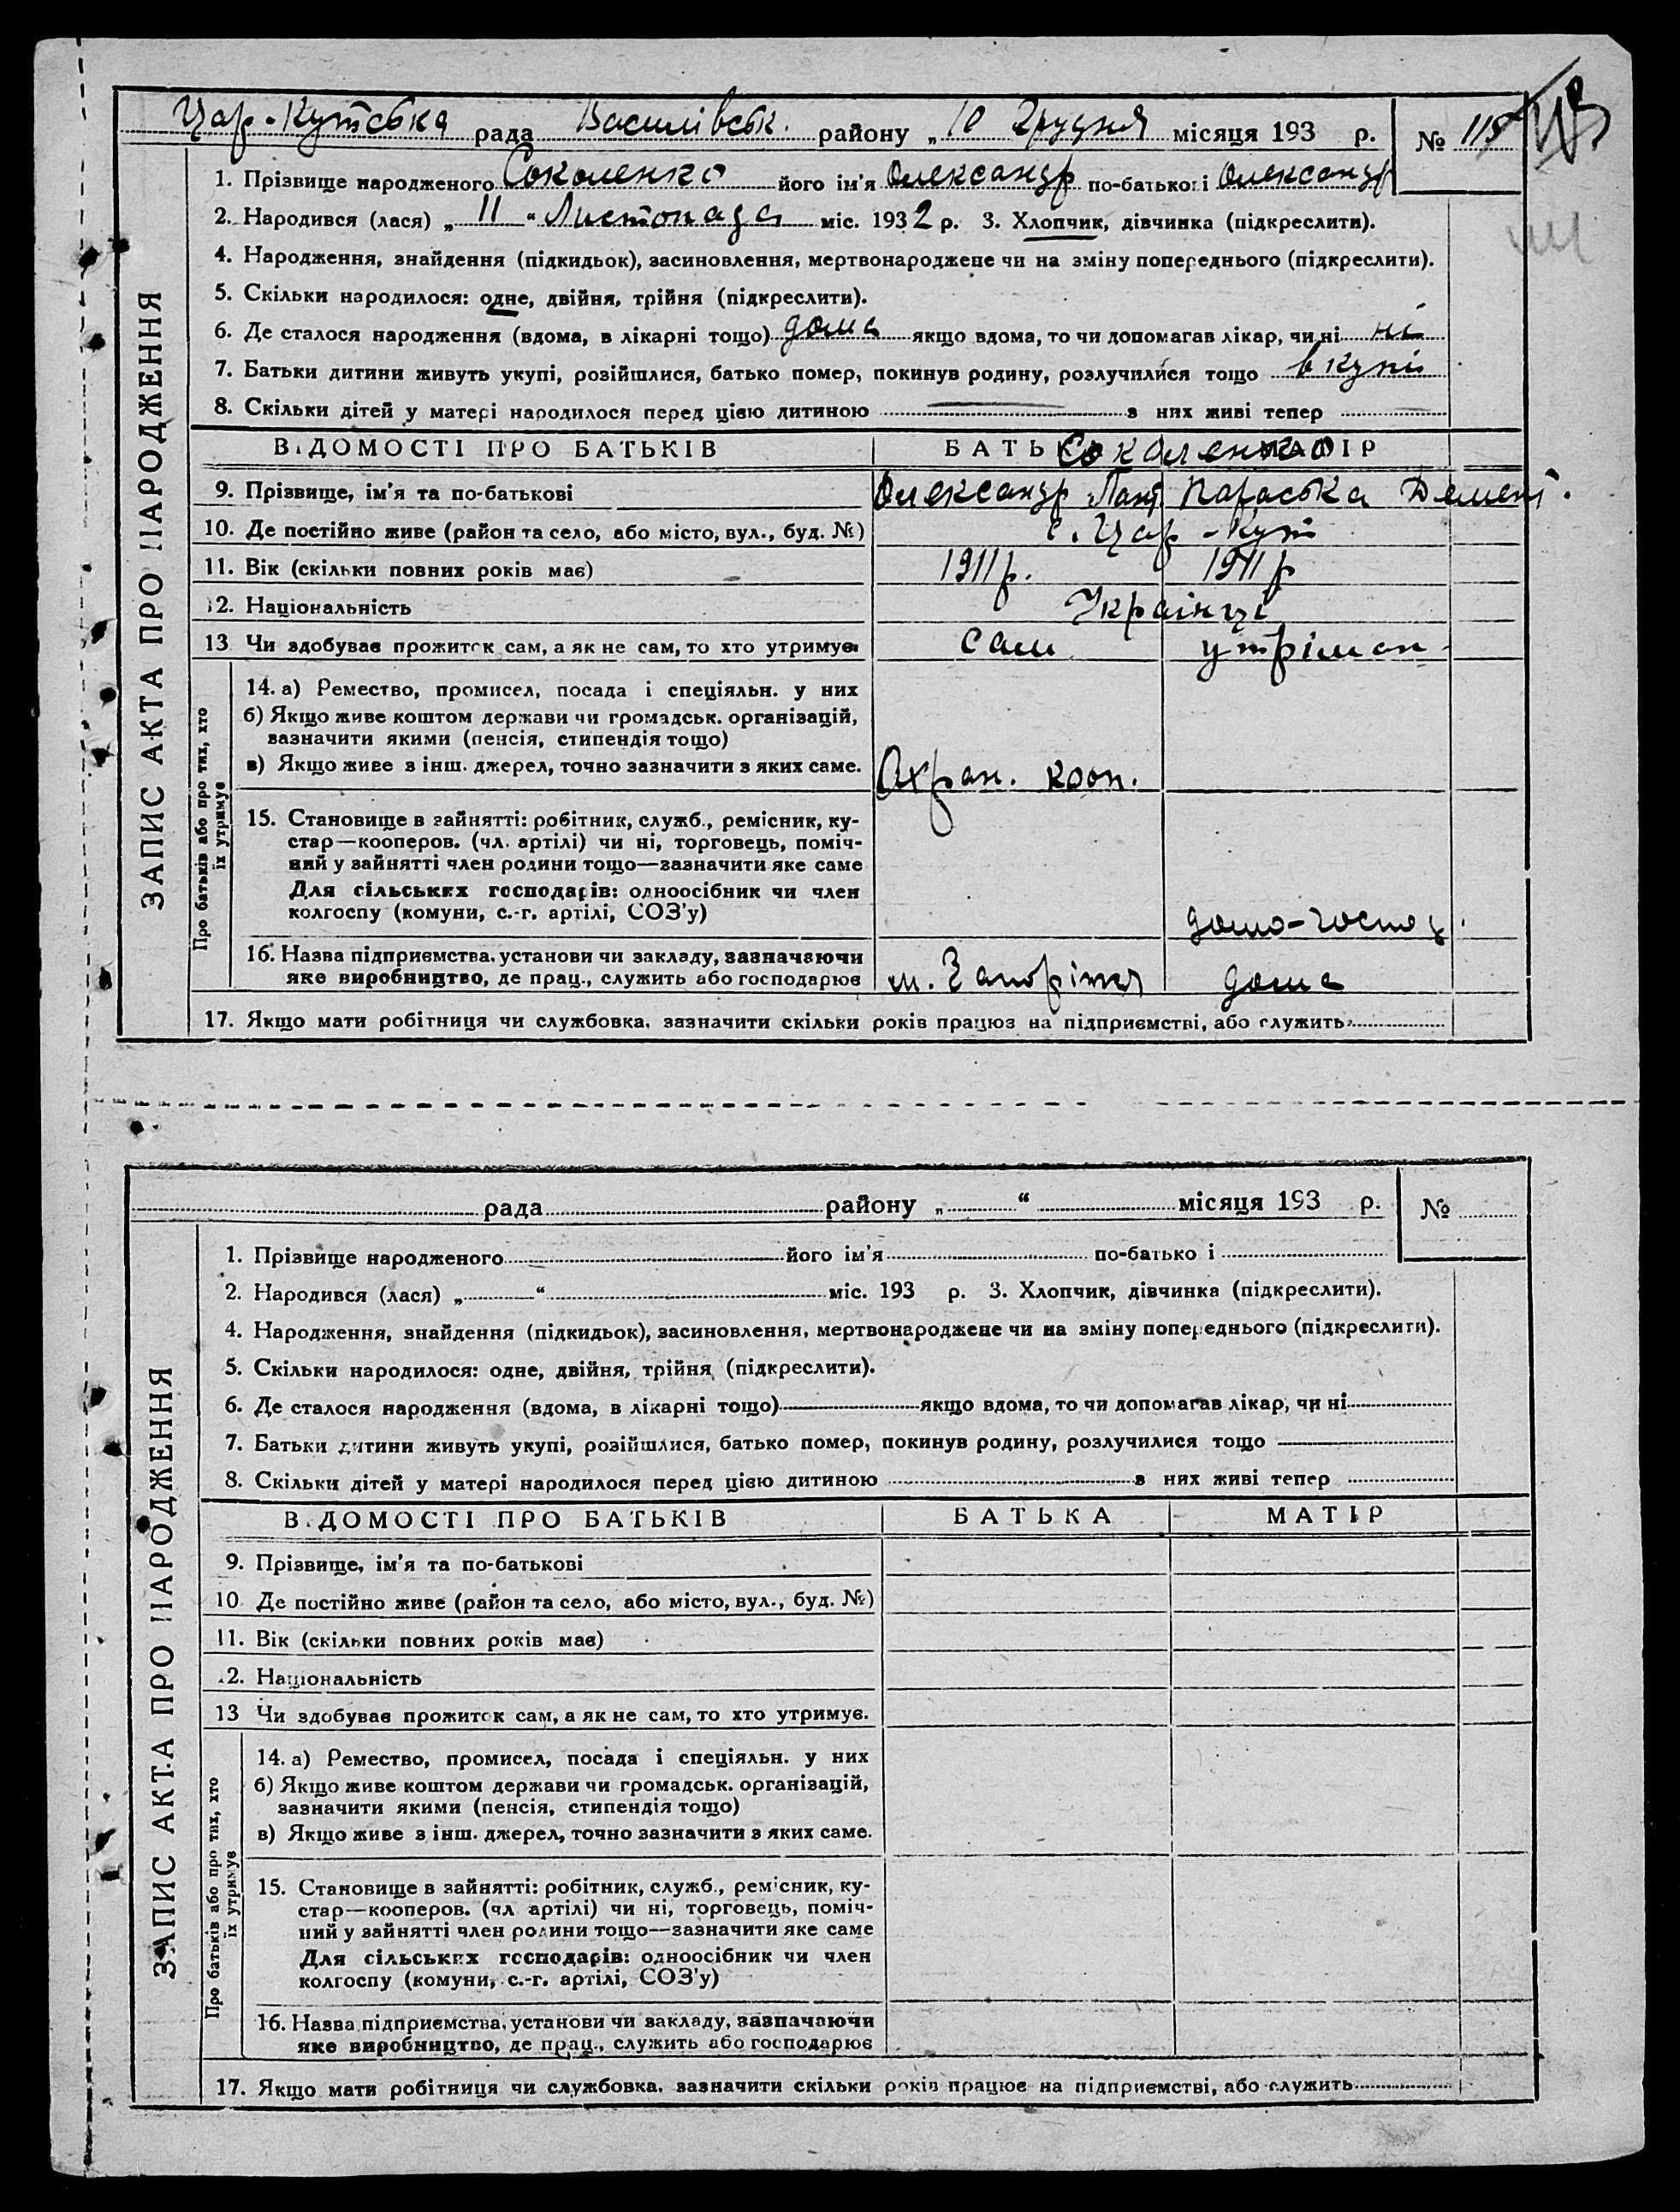 Цар-Кутська рада Василівськ. району „10 Грудня місяця 193 р. № 115
1. Прізвище народженого Соколенко його ім'я Олександр по-батькові Олександр
2. Народився (лася) „ 11 “ Листопада міс. 1932 р. 3. Хлопчик, дівчинка (підкреслити).
4. Народження, знайдення (підкидьок), засиновлення, мертвонароджене чи на зміну попереднього (підкреслити).
5. Скільки народилося: одне, двійня, трійня (підкреслити).
6. Де сталося народження (вдома, в лікарні тощо) дома якщо вдома, то чи допомагав лікар, чи ні ні
7. Батьки дитини живуть укупі, розійшлися, батько помер, покинув родину, розлучилися тощо вкупі
8. Скільки дітей у матері народилося перед цією дитиною — з них живі тепер —
ВІДОМОСТІ ПРО БАТЬКІВ БАТЬКА МАТІР
Соколенко
9. Прізвище, ім'я та по-батькові Олександр Пант. Параська Демент.
10. Де постійно живе (район та село, або місто, вул., буд. №) с. Цар-Кут
11. Вік (скільки повних років має) 1911 р. 1911 р
12. Національність Українці
13 Чи здобуває прожиток сам, а як не сам, то хто утримує. сам утріман
Про батьків або про тих, хто їх утримує
14. а) Ремество, промисел, посада і спеціяльн. у них
б) Якщо живе коштом держави чи громадськ. організацій,
зазначити якими (пенсія, стипендія тощо)
в) Якщо живе з інш. джерел, точно зазначити з яких саме. Охран. кооп.
15. Становище в зайнятті: робітник, служб., ремісник, ку-
стар—кооперов. (чл. артілі) чи ні, торговець, поміч-
ний у зайнятті член родини тощо—зазначити яке саме
Для сільських господарів: одноосібник чи член
колгоспу (комуни, с.-г. артілі, СОЗ'у) домо-господ.
16. Назва підприємства, установи чи закладу, зазначаючи
яке виробництво, де прац., служить або господарює м. Запоріжжя дома
17. Якщо мати робітниця чи службовка, зазначити скільки років працює на підприємстві, або служить
ЗАПИС АКТА ПРО НАРОДЖЕННЯ
рада района району „ “ місяця 193 р. №
1. Прізвище народженого його ім'я по-батькові
2. Народився (лася) „ “ міс. 193 р. 3. Хлопчик, дівчинка (підкреслити).
4. Народження, знайдення (підкидьок), засиновлення, мертвонароджене чи на зміну попереднього (підкреслити).
5. Скільки народилося: одне, двійня, трійня (підкреслити).
6. Де сталося народження (вдома, в лікарні тощо) якщо вдома, то чи допомагав лікар, чи ні
7. Батьки дитини живуть укупі, розійшлися, батько помер, покинув родину, розлучилися тощо
8. Скільки дітей у матері народилося перед цією дитиною з них живі тепер
ВІДОМОСТІ ПРО БАТЬКІВ БАТЬКА МАТІР
9. Прізвище, ім'я та по-батькові
10 Де постійно живе (район та село, або місто, вул., буд. №)
11. Вік (скільки повних років має)
12. Національність
13 Чи здобуває прожиток сам, а як не сам, то хто утримує.
Про батьків або про тих, хто їх утримує
14. а) Ремество, промисел, посада і спеціяльн. у них
б) Якщо живе коштом держави чи громадськ. організацій,
зазначити якими (пенсія, стипендія тощо)
в) Якщо живе з інш. джерел, точно зазначити з яких саме.
15. Становище в зайнятті: робітник, служб., ремісник, ку-
стар—кооперов. (чл артілі) чи ні, торговець, поміч-
ний у зайнятті член родини тощо—зазначити яке саме
Для сільських господарів: одноосібник чи член
колгоспу (комуни, с.-г. артілі, СОЗ'у)
16. Назва підприємства, установи чи закладу, зазначаючи
яке виробництво, де прац., служить або господарює
17. Якщо мати робітниця чи службовка, зазначити скільки років працює на підприємстві, або служить
ЗАПИС АКТА ПРО НАРОДЖЕННЯ